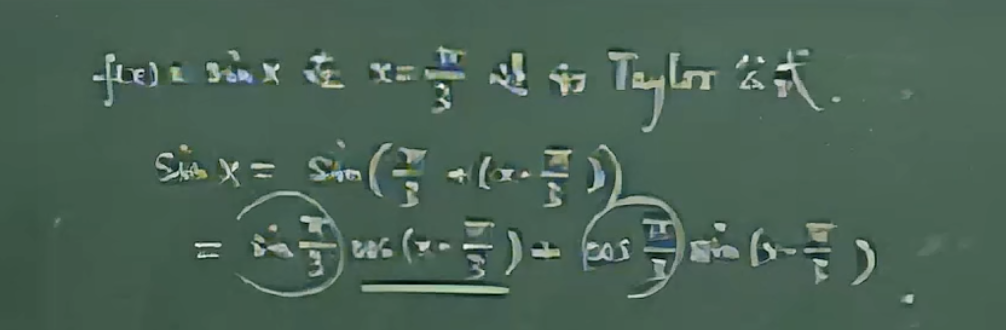 f(x) = sin x 在 x = π/3 的 Taylor 公式.
sin x = sin(π/3 + (x - π/3))
= sin π/3 cos(x - π/3) + cos π/3 sin(x - π/3)